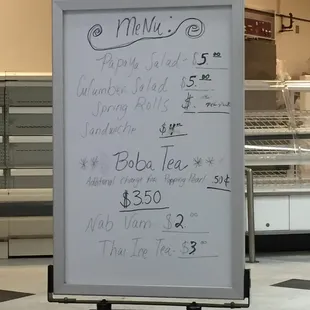 MeNu:
Papaya Salad - $5.00
Cucumber Salad $5.00
Spring Rolls $
Sandwich $
** Boba Tea **
Additional charge for Popping Pearl .50¢
$3.50
Nab Vam $2.00
Thai Ice Tea - $3.00